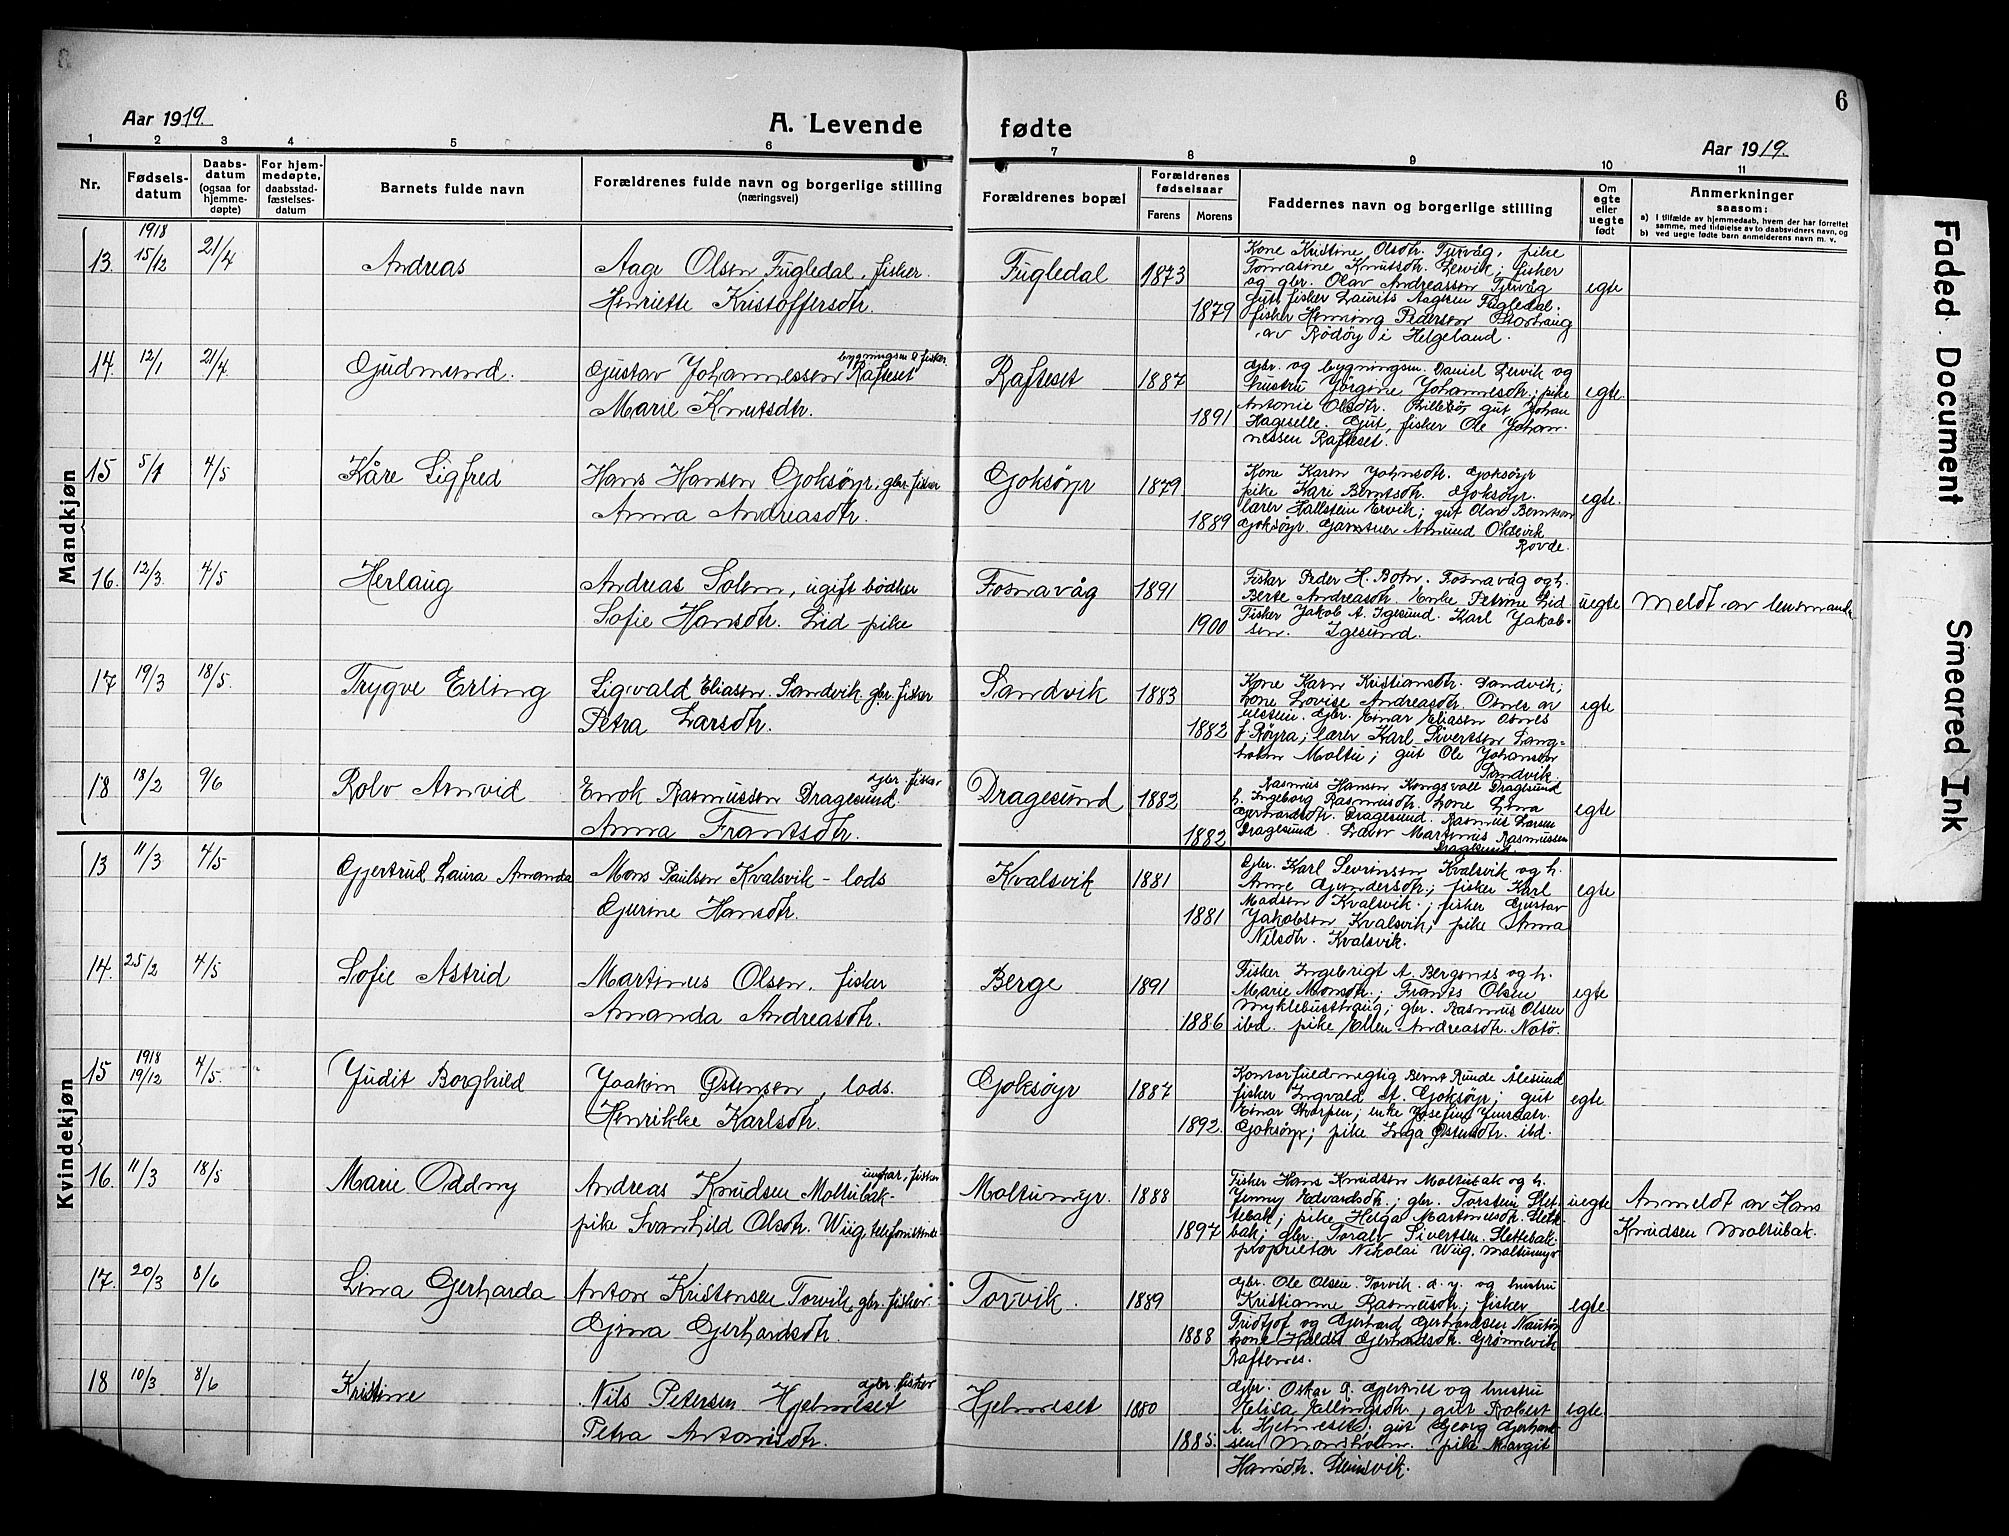 6
Aar 1919.
A. Levende
fødte
Aar 1919.
1 2 3 4 5 6 7 8 9 10 11
Nr.
Fødselsdatum
Daabsdatum (ogsaa for hjemmedøpte)
For hjemmedøpte, daabsstadfæstelsesdatum
Barnets fulde navn
Forældrenes fulde navn og borgerlige stilling (næringsvei)
Forældrenes bopæl
Forældrenes fødselsaar
Farens Morens
Faddernes navn og borgerlige stilling
Om egte eller uegte født
Anmerkninger saasom:
a) I tilfælde av hjemmedaab, hvem der har forrettet samme, med tilføielse av to daabsvidners navn, og
b) ved uegte fødte barn anmelderens navn m. v.
Mandkjøn
13. 1918 15/12 21/4 Andreas
Aage Olsen Fugledal, fisker.
Henriette Kristoffersdtr.
Fugledal 1873 1879
Kone Kristine Olsdtr. Tjervåg, pike
Tomasine Knutsdtr. Lervik; fisker
og gbr. Olav Andreassen Tjervåg
gutt fisker Laurits Aagesen Fugledal.
fisker Henning Pedersen Storhaug
av Rödöy i Helgeland.
egte
14. 12/1 21/4 Gudmund.
bygningsm & fisker
Gustav Johannessen Rafteset
Marie Knutsdtr.
Rafteset 1887 1891
gbr. og bygningsm. Daniel Lervik og
hustru Jörgine Johannesdtr; pike
Antonie Olsdtr. gut Johan
Hageselle. Gut, fisker Ole Johannessen
Rafteset.
egte.
15 5/1 4/5 Kåre Sigfred
Hans Hansen Goksöyr, gbr. fisker
Anna Andreasdtr.
Goksöyr 1879 1889
Kone Karen Johnsdtr. Goksöyr
pike Kari Berntsdtr. Goksöyr.
lærer Hallstein Ervik; gut Olav Berntsen
Goksöyr. Amund
Rovde.
egte.
16. 12/3. 4/5 Herlaug
Andreas Solem, ugift bödker
Sofie Hansdtr. Lid - pike
Fosnavåg 1891 1900
Fisker Peder H. Fosnavåg og h.
Berte Andreasdtr. Enke Petrine Lid
Fisker Jakob A. Igesund. Karl Jakobsen.
Igesund.
uegte
Meldt av lensmand
17 19/3 18/5. Trygve Erling
Sigvald Eliasen Sandvik. gbr. fisker
Petra Larsdtr.
Sandvik 1883 1882
Kone Karn Kristiansdtr. Sandvik;
kone Lovise Andreasdtr. Osnes av
Ulstein. gbr. Einar Eliasen Osnes
f. Röyra; lærer Karl Sivertsen Langholm
Moltu; gut Ole Johansen
Sandvik.
egte
18 18/2 9/6 Rolv Arnvid
gbr. fisker
Enok Rasmussen Dragesund.
Anna Frantsdtr.
Dragesund 1882 1882
Rasmus Hansen Kongsvoll Dragesund
h. Ingeborg Rasmusdtr. kone Lina
Gerhardsdtr. Dragesund. Rasmus Larsen
Dragesund. Martinus Rasmussen
Dragesund
egte
Kvindekjøn
13 11/3 4/5 Gjertrud Laura Amanda
Mons Paulsen Kvalsvik - lods
Gurine Hansdtr.
Kvalsvik 1881 1881
Gbr. Karl Severinsen Kvalsvik og h.
Anne Gundersdtr; fisker Karl
Madsen Kvalsvik.; fisker Gustav
Jakobsen Kvalsvik; pike Anna
Nilsdtr. Kvalsvik.
egte
14. 25/2 4/5 Sofie Astrid
Martinus Olsen, fisker
Amanda Andreasdtr.
Berge 1891 1886
Fisker Ingebrigt A. Bergsnes og h.
Marie Monsdtr.; Frants Olsen
Myklebusthaug; gbr. Rasmus Olsen
ibd. pike Ellen Andreasdtr. Notö.
egte
15 1918 19/12 4/5. Judit Borghild
Joakim Østensen, lods.
Henrikke Karlsdtr.
Goksöyr 1887 1892.
Kontorfuldmegtig Bernt Runde Ålesund
fisker Ingvald St. Goksöyr; gut
Einar; enke Josefine
Goksöyr; pike Inga Østensdtr. ibd.
egte.
16. 11/3 18/5 Marie Oddny
ungkar, fisker
Andreas Knudsen Moltubak-
pike Svanhild Olsdtr. Wiig, telefonistinde
Moltumyr. 1888 1897
Fisker Hans Knudsen Moltubak og h.
Jenny Edvardsdtr; gbr. Torstein Slettebak;
pike Helga Martinesdtr. Slettebak;
gbr. Toralv Sivertsen Slettebak.
proprietær Nikolai Wiig. Moltumyr
uegte
Anmeldt av Hans
Knudsen Moltubak.
17. 20/3 8/6 Lina Gerharda
Anton Kristensen Torvik, gbr. fisker.
Gina Gerhardsdtr
Torvik. 1889 1888
gbr. Ole Olsen. Torvik. d. y. og hustru
Kristianne Rasmusdtr; fisker
Fridtjof og Gerhard Gerhardsen
kone Halda Gerhardsdtr. Grönnevik
Raftenes.
egte.
18 10/3 8/6 Kristine
gbr. fisker
Nils Petersen Hjelmeset
Petra Antonsdtr.
Hjelmeset 1880 1885.
gbr. Oskar og hustru
Elisa Ellingsdtr; gut Robert
A. Hjelmeset; gut Georg Gerhardsen
Monsholm. pike Margit
Hansdtr. Steinsvik.
egte.
Faded Document
Smeared Ink